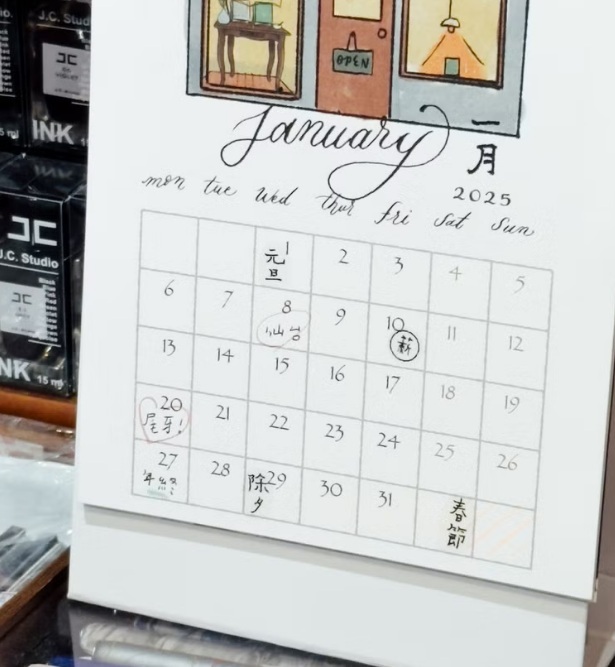 J.C. Studio
INK
15 ml
J.C. Studio
INK
15 ml
OPEN
January
一月
2025
mon tue wed thur fri sat sun
1 2 3 4 5
元旦
6 7 8 9 10 11 12
仙台
薪
13 14 15 16 17 18 19
20 21 22 23 24 25 26
尾牙!
27 28 29 30 31
年終
除夕
春節